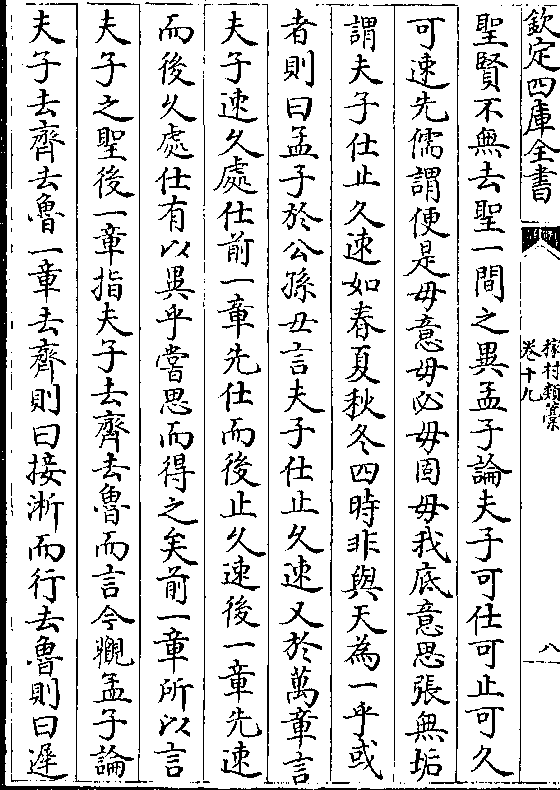 欽定四庫全書
稼村類藁
卷十九
八
聖賢不無去聖一間之異孟子論夫子可仕可止可久
可速先儒謂便是毋意毋必毋固毋我底意思張無垢
謂夫子仕止久速如春夏秋冬四時非與天為一乎或
者則曰孟子於公孫丑言夫子仕止久速又於萬章言
夫子速久處仕前一章先仕而後止久速後一章先速
而後久處仕有以異乎嘗思而得之矣前一章所以言
夫子之聖後一章指夫子去齊去魯而言今觀孟子論
夫子去齊去魯一章去齊則曰接淅而行去魯則曰遲